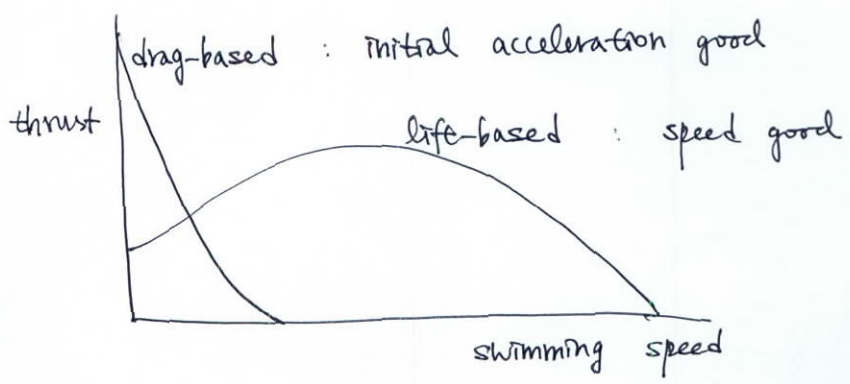 drag-based : initial acceleration good
thrust
life-based : speed good
swimming speed